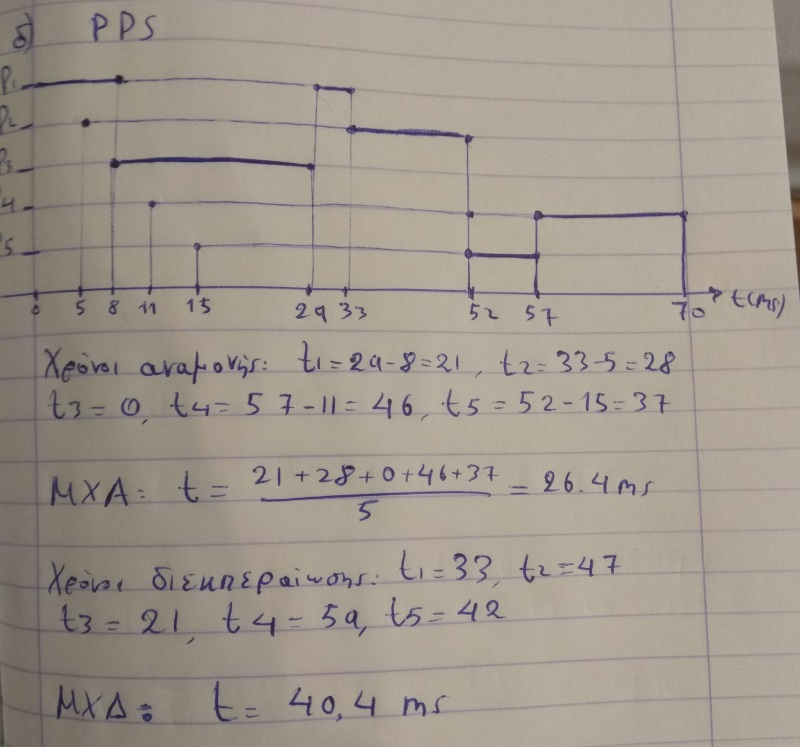 δ) PPS
P1
P2
P3
4
5
0 5 8 11 15 29 33 52 57 70 t(ms)
Χρόνοι αναμονής: t1=29-8=21, t2=33-5=28
t3=0, t4=57-11=46, t5=52-15=37
ΜΧΑ: t= 21+28+0+46+37 = 26.4ms
5
Χρόνοι διεκπεραίωσης: t1=33, t2=47
t3=21, t4=59, t5=42
ΜΧΔ: t= 40,4 ms